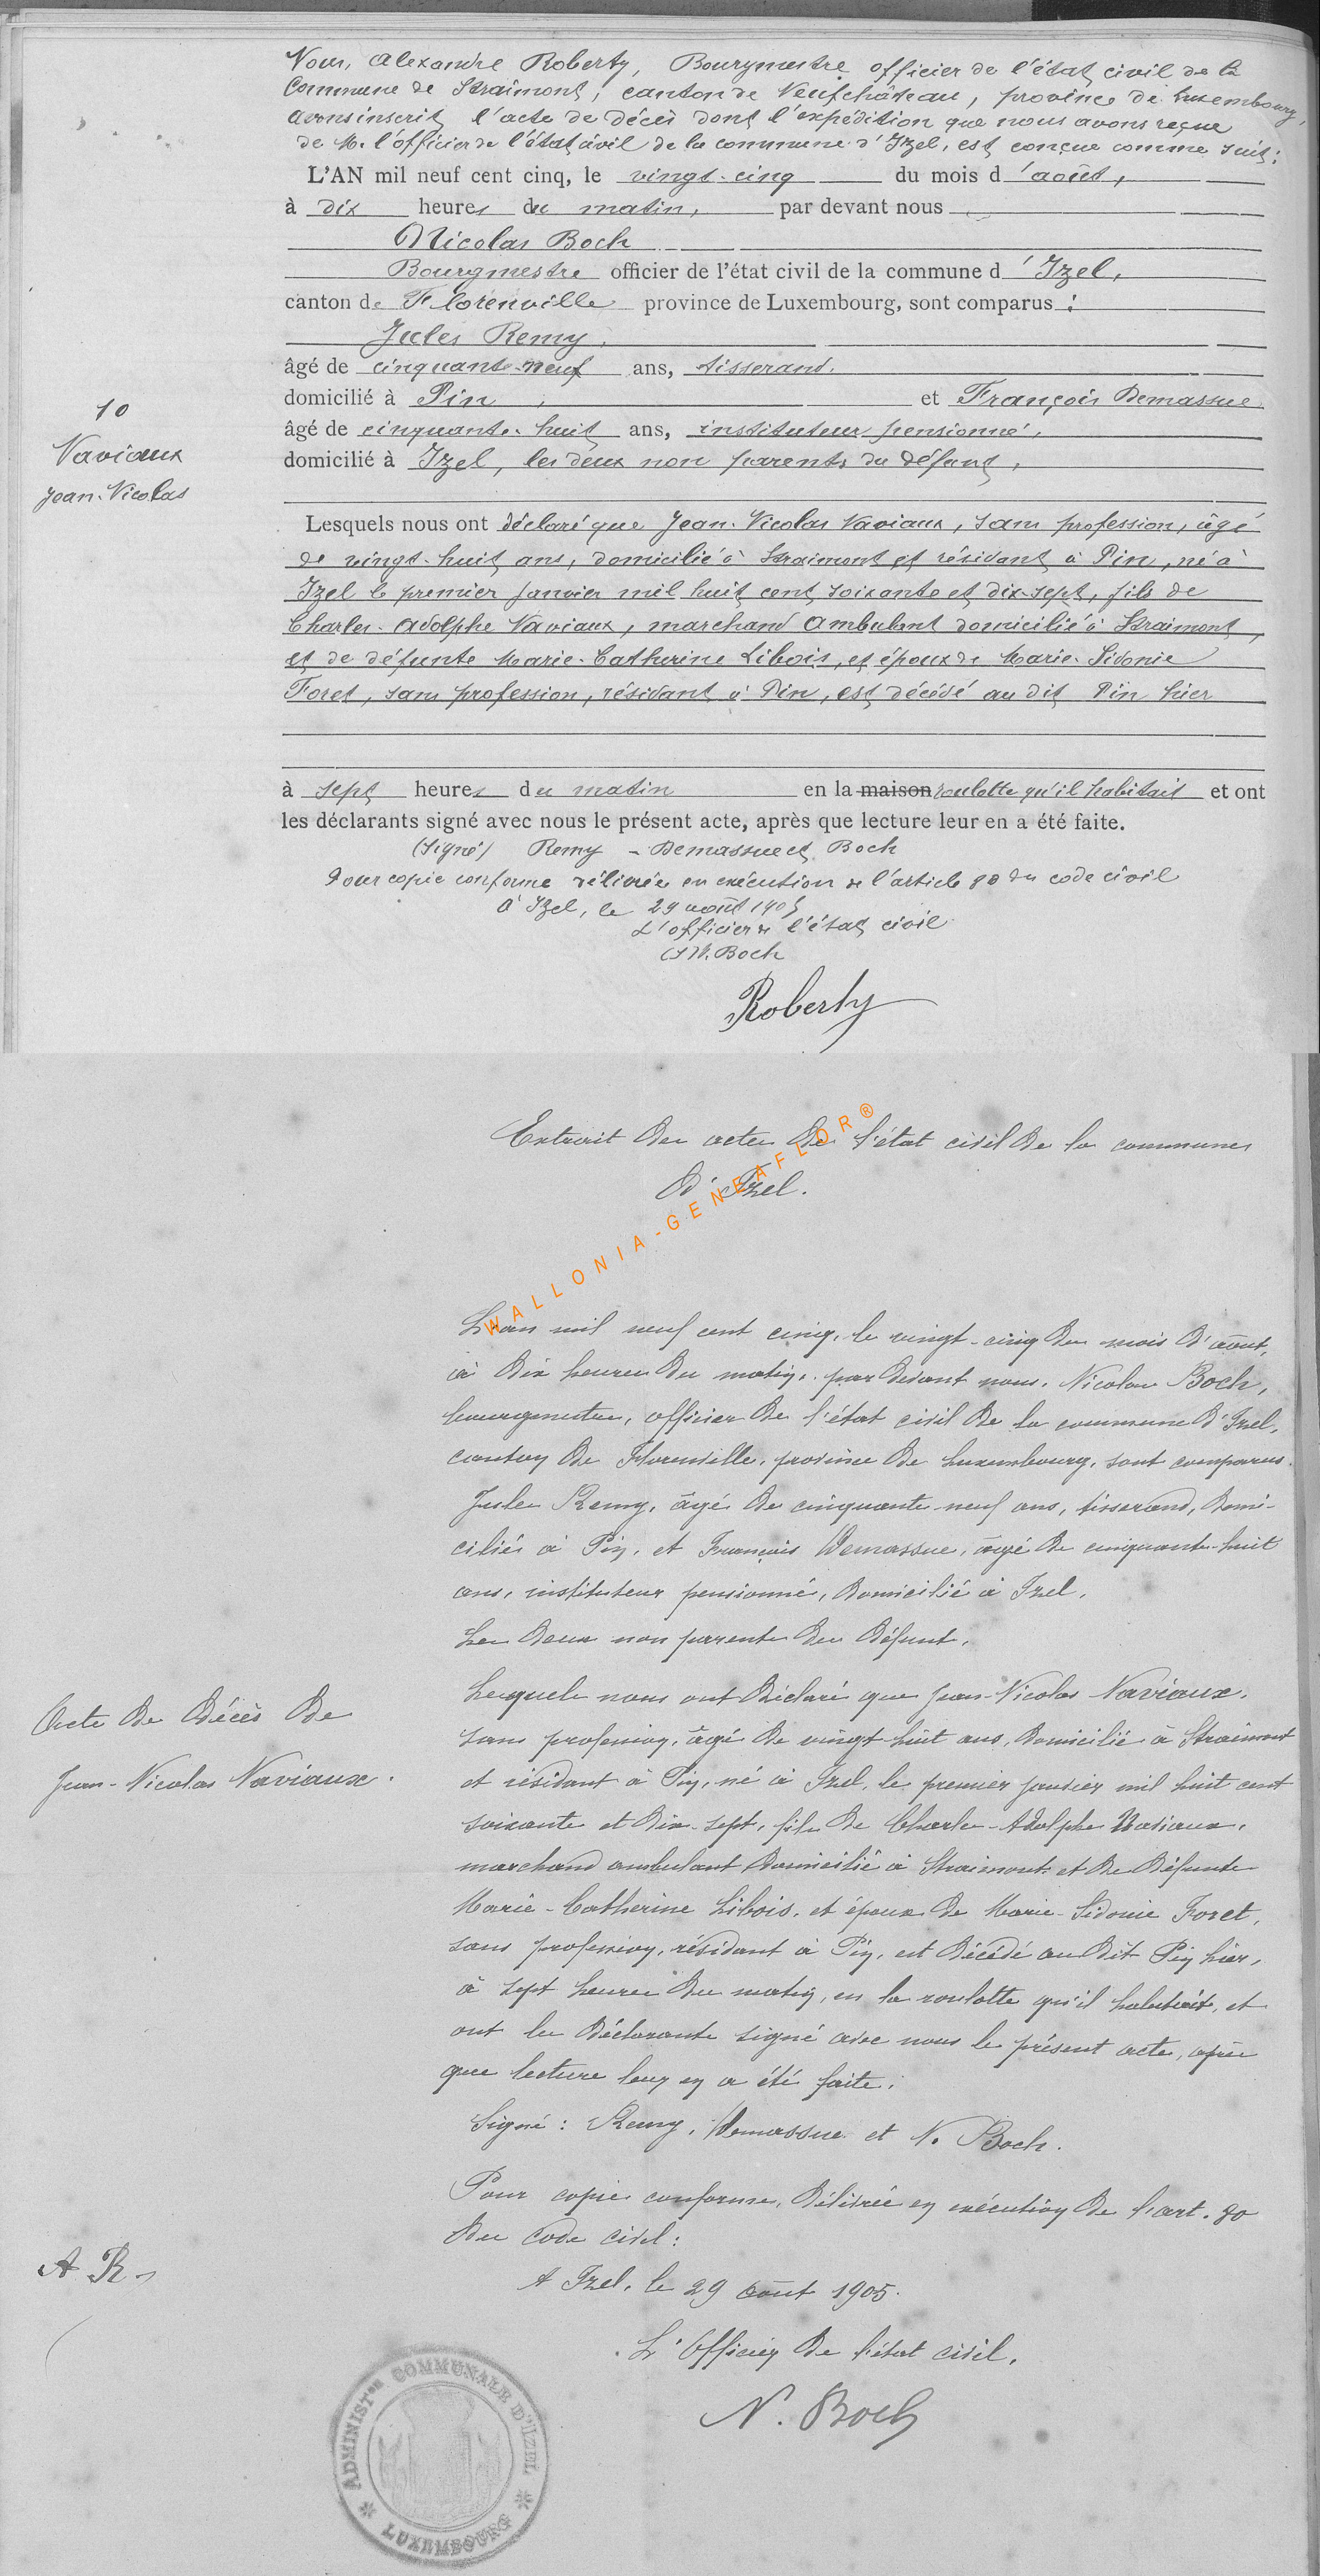 Nous, Alexandre Roberty, Bourgmestre officier de l'état civil de la
Commune de Straimont, canton de Neufchâteau, province de Luxembourg,
avons inscrit l'acte de décès dont l'expédition que nous avons reçue
de M. l'officier de l'état civil de la commune d'Izel, est conçue comme suit:
L'AN mil neuf cent cinq, le vingt-cinq du mois d'août,
à dix heures du matin, par devant nous
Nicolas Boch
Bourgmestre officier de l'état civil de la commune d'Izel,
canton de Florenville province de Luxembourg, sont comparus :
Jules Remy,
âgé de cinquante-neuf ans, tisserand,
domicilié à Pin, et François Demassue
10
âgé de cinquante-huit ans, instituteur pensionné,
Naviaux
domicilié à Izel, les deux non parents du défunt,
Jean-Nicolas
Lesquels nous ont déclaré que Jean-Nicolas Naviaux, sans profession, âgé
de vingt-huit ans, domicilié à Straimont et résidant à Pin, né à
Izel le premier janvier mil huit cent soixante et dix-sept, fils de
Charles-Adolphe Naviaux, marchand ambulant domicilié à Straimont,
et de défunte Marie-Catherine Libois, et époux de Marie-Sidonie
Foret, sans profession, résidant à Pin, est décédé au dit Pin hier
à sept heures du matin en la maison roulotte qu'il habitait et ont
les déclarants signé avec nous le présent acte, après que lecture leur en a été faite.
(Signé) Remy - Demassue et Boch
Pour copie conforme délivrée en exécution de l'article 80 du code civil
à Izel, le 29 août 1905
L'officier de l'état civil
(s) N. Boch
Roberty
Extrait des actes de l'état civil de la commune
d'Izel.
WALLONIA-GENEAFLOR®
L'an mil neuf cent cinq, le vingt-cinq du mois d'août,
à dix heures du matin, par devant nous, Nicolas Boch,
bourgmestre, officier de l'état civil de la commune d'Izel,
canton de Florenville, province de Luxembourg, sont comparus
Jules Remy, âgé de cinquante-neuf ans, tisserand, domi-
cilié à Pin, et François Demassue, âgé de cinquante-huit
ans, instituteur pensionné, domicilié à Izel,
Les deux non parents du défunt.
Lesquels nous ont déclaré que Jean-Nicolas Naviaux,
Acte de Décès de
sans profession, âgé de vingt-huit ans, domicilié à Straimont
Jean-Nicolas Naviaux.
et résidant à Pin, né à Izel, le premier janvier mil huit cent
soixante et dix-sept, fils de Charles-Adolphe Naviaux,
marchand ambulant domicilié à Straimont et de défunte
Marie-Catherine Libois, et époux de Marie-Sidonie Foret,
sans profession, résidant à Pin, est décédé au dit Pin hier,
à sept heures du matin, en la roulotte qu'il habitait, et
ont les déclarants signé avec nous le présent acte, après
que lecture leur en a été faite.
Signé : Remy, Demassue et N. Boch.
Pour copie conforme, délivrée en exécution de l'art. 80
du Code civil :
A R
A Izel, le 29 août 1905.
L'Officier de l'état civil,
N. Boch
ADMINISTON COMMUNALE D'IZEL
* LUXEMBOURG *